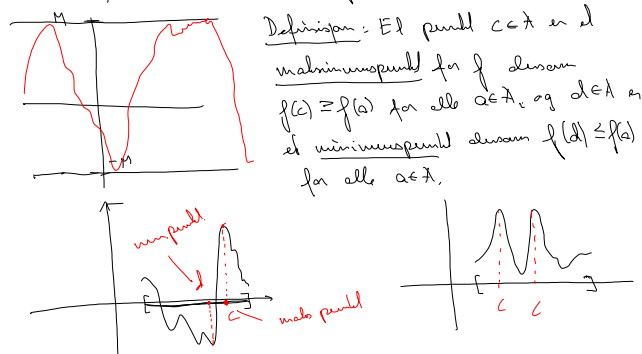 M
Definisjon: Et punkt c∈A er et
maksimumspunkt for f dersom
f(c) ≥ f(a) for alle a∈A, og d∈A er
et minimumspunkt dersom f(d) ≤ f(a)
for alle a∈A.
-M
min punkt
d
[ ]
c
maks punkt
[ ]
c c